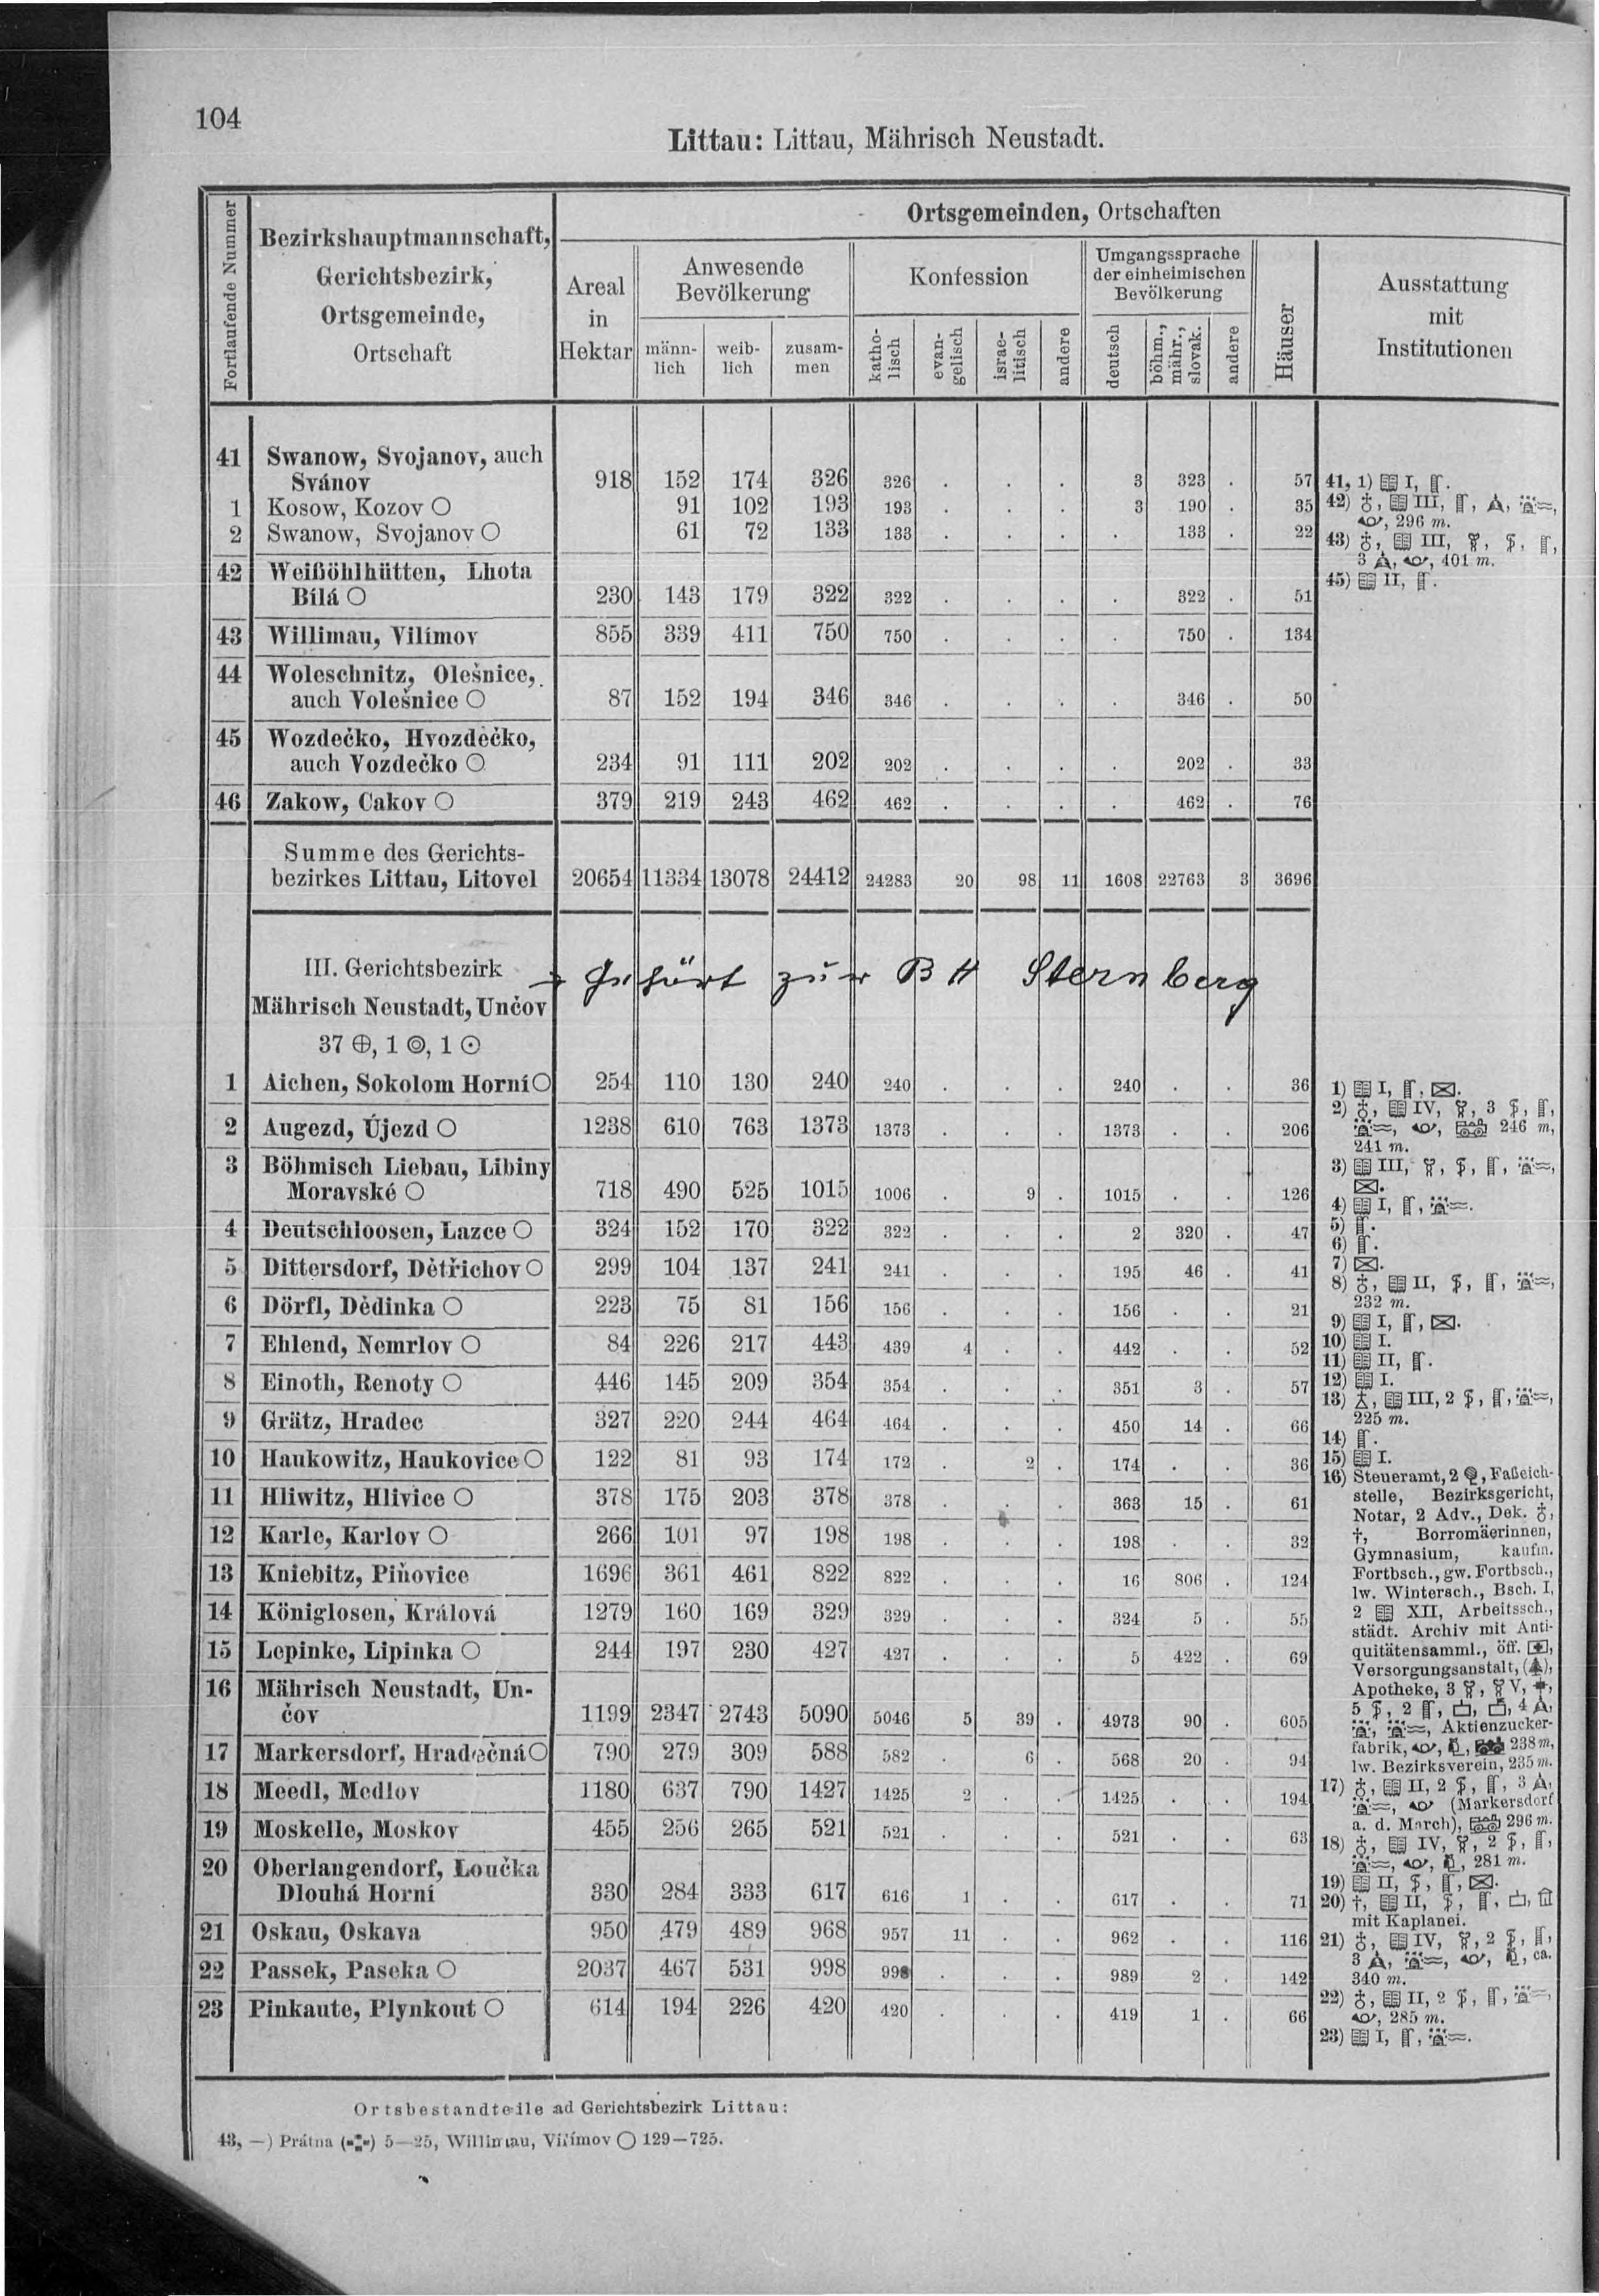 104
Littau: Littau, Mährisch Neustadt.
Fortlaufende Nummer
Bezirkshauptmannschaft,
Gerichtsbezirk,
Ortsgemeinde,
Ortschaft
Ortsgemeinden, Ortschaften
Areal
in
Hektar
Anwesende
Bevölkerung
männ-
lich
weib-
lich
zusam-
men
Konfession
katho-
lisch
evan-
gelisch
israe-
litisch
andere
Umgangssprache
der einheimischen
Bevölkerung
deutsch
böhm.,
mähr.,
slovak.
andere
Häuser
Ausstattung
mit
Institutionen
41 Swanow, Svojanov, auch
Svánov 918 152 174 326 326 . . . 3 323 . 57
1 Kosow, Kozov ○ 91 102 193 193 . . . 3 190 . 35
2 Swanow, Svojanov ○ 61 72 133 133 . . . . 133 . 22
42 Weißöhlhütten, Lhota
Bílá ○ 230 143 179 322 322 . . . . 322 . 51
43 Willimau, Vilímov 855 339 411 750 750 . . . . 750 . 134
44 Woleschnitz, Olešnice,
auch Volešnice ○ 87 152 194 346 346 . . . . 346 . 50
45 Wozdečko, Hvozdečko,
auch Vozdečko ○ 234 91 111 202 202 . . . . 202 . 33
46 Zakow, Cakov ○ 379 219 243 462 462 . . . . 462 . 76
Summe des Gerichts-
bezirkes Littau, Litovel 20654 11334 13078 24412 24283 20 98 11 1608 22763 3 3696
41, 1) I, .
42) , III, , , ,
, 296 m.
43) , III, , , ,
3 , , 401 m.
45) II, .
III. Gerichtsbezirk
Mährisch Neustadt, Unčov
→ Gehört zur BH Sternberg
37 ⊕, 1 ◎, 1 ⊙
1 Aichen, Sokolom Horní ○ 254 110 130 240 240 . . . 240 . . 36
2 Augezd, Újezd ○ 1238 610 763 1373 1373 . . . 1373 . . 206
3 Böhmisch Liebau, Libiny
Moravské ○ 718 490 525 1015 1006 . 9 . 1015 . . 126
4 Deutschloosen, Lazce ○ 324 152 170 322 322 . . . 2 320 . 47
5 Dittersdorf, Dětřichov ○ 299 104 137 241 241 . . . 195 46 . 41
6 Dörfl, Dědinka ○ 223 75 81 156 156 . . . 156 . . 21
7 Ehlend, Nemrlov ○ 84 226 217 443 439 4 . . 442 . . 52
8 Einoth, Renoty ○ 446 145 209 354 354 . . . 351 3 . 57
9 Grätz, Hradec 327 220 244 464 464 . . . 450 14 . 66
10 Haukowitz, Haukovice ○ 122 81 93 174 172 . 2 . 174 . . 36
11 Hliwitz, Hlivice ○ 378 175 203 378 378 . . . 363 15 . 61
12 Karle, Karlov ○ 266 101 97 198 198 . . . 198 . . 32
13 Kniebitz, Piňovice 1696 361 461 822 822 . . . 16 806 . 124
14 Königlosen, Králová 1279 160 169 329 329 . . . 324 5 . 55
15 Lepinke, Lipinka ○ 244 197 230 427 427 . . . 5 422 . 69
16 Mährisch Neustadt, Un-
čov 1199 2347 2743 5090 5046 5 39 . 4973 90 . 605
17 Markersdorf, Hradečná ○ 790 279 309 588 582 . 6 . 568 20 . 94
18 Meedl, Medlov 1180 637 790 1427 1425 2 . . 1425 . . 194
19 Moskelle, Moskov 455 256 265 521 521 . . . 521 . . 63
20 Oberlangendorf, Loučka
Dlouhá Horní 330 284 333 617 616 1 . . 617 . . 71
21 Oskau, Oskava 950 479 489 968 957 11 . . 962 . . 116
22 Passek, Paseka ○ 2037 467 531 998 998 . . . 989 2 . 142
23 Pinkaute, Plynkout ○ 614 194 226 420 420 . . . 419 1 . 66
1) I, , .
2) , IV, , 3 , ,
, , 246 m,
241 m.
3) III, , , , ,
.
4) I, , .
5) .
6) .
7) .
8) , II, , , ,
232 m.
9) I, , .
10) I.
11) II, .
12) I.
13) , III, 2 , , ,
225 m.
14) .
15) I.
16) Steueramt, 2 , Faßeich-
stelle, Bezirksgericht,
Notar, 2 Adv., Dek. ,
†, Borromäerinnen,
Gymnasium, kaufm.
Fortbsch., gw. Fortbsch.,
lw. Wintersch., Bsch. I,
2 XII, Arbeitssch.,
städt. Archiv mit Anti-
quitätensamml., öff. ,
Versorgungsanstalt, ( ),
Apotheke, 3 , V, ,
5 , 2 , , , 4 ,
, , Aktienzucker-
fabrik, , , 238 m,
lw. Bezirksverein, 235 m.
17) , II, 2 , , 3 ,
, (Markersdorf
a. d. March), 296 m.
18) , IV, , 2 , ,
, , , 281 m.
19) II, , , .
20) †, II, , , ,
mit Kaplanei.
21) , IV, , 2 , ,
3 , , , , ca.
340 m.
22) , II, 2 , , ,
, 285 m.
23) I, , .
Ortsbestandteile ad Gerichtsbezirk Littau:
43, —) Prátna ( ) 5—25, Willimau, Vilímov ○ 129—725.